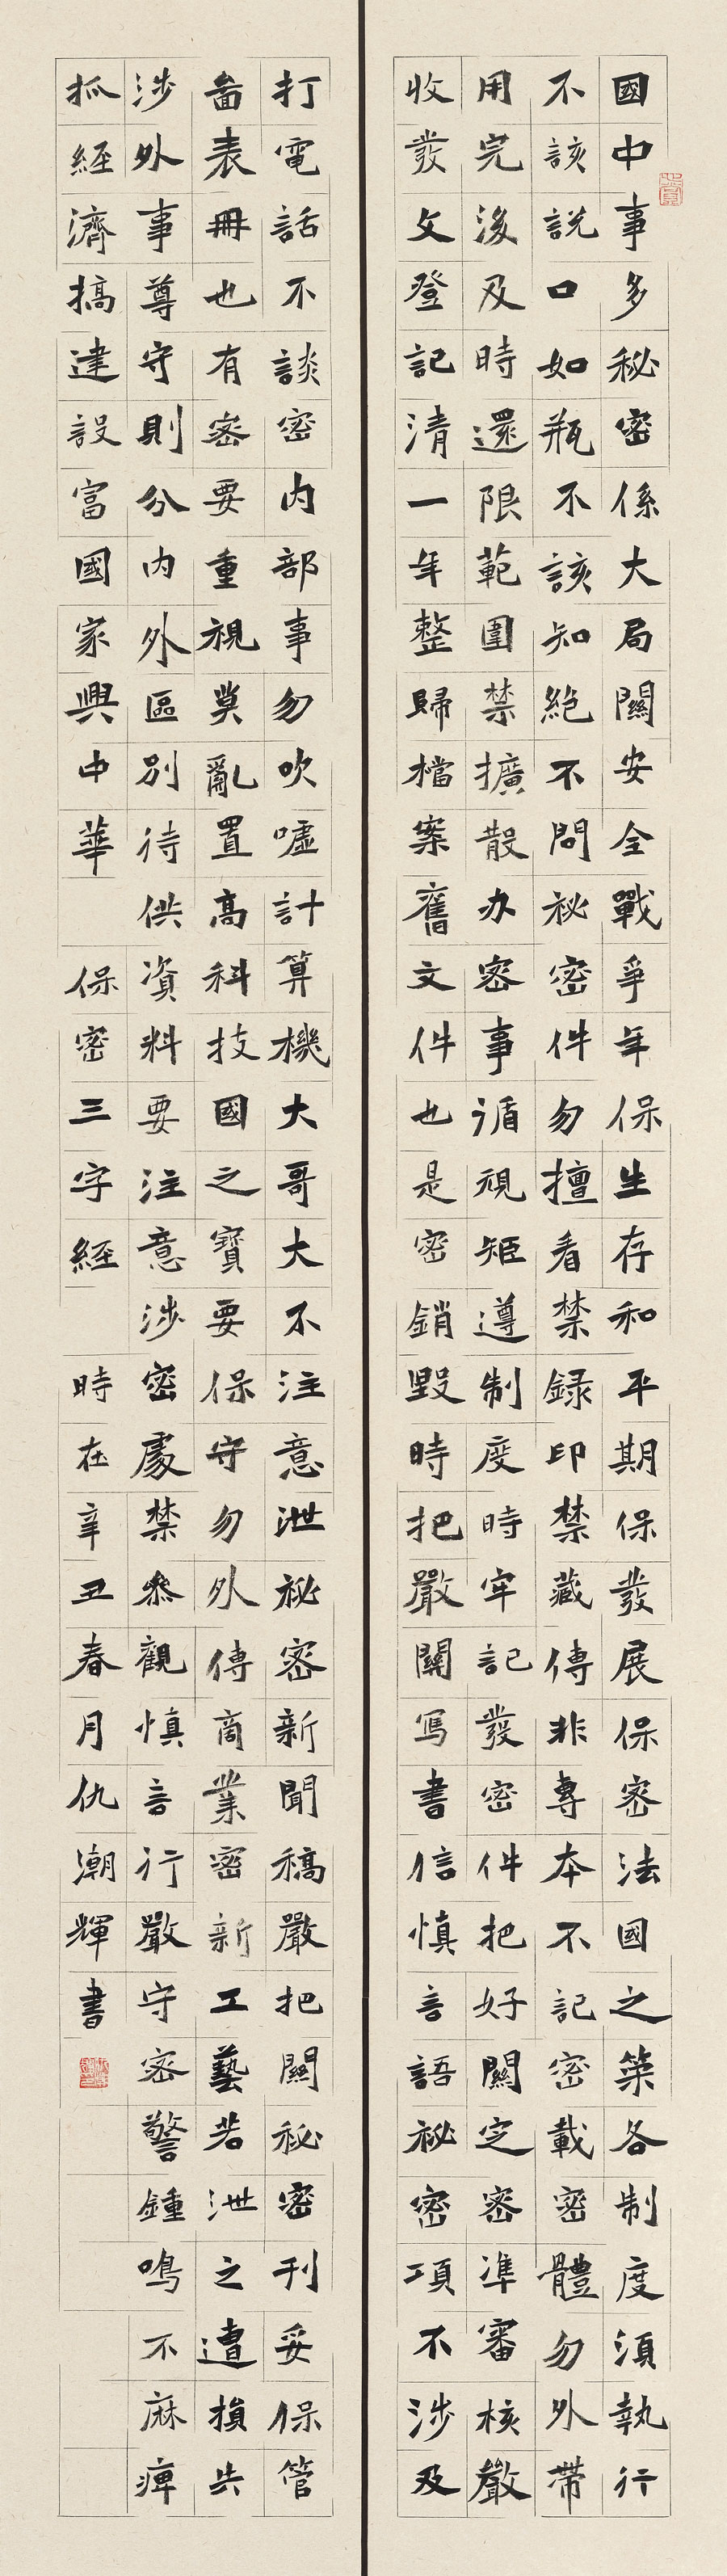 國中事多秘密係大局關安全戰爭年保生存和平期保發展保密法國之策各制度須執行
不該説口如瓶不該知絶不問祕密件勿擅看禁録印禁藏傳非專本不記密載密體勿外帶
用完後及時還限範圍禁擴散办密事循規矩遵制度時牢記發密件把好關定密準審核嚴
收發文登記清一年整歸檔案舊文件也是密銷毀時把嚴關寫書信慎言語祕密項不涉及
打電話不談密内部事勿吹噓計算機大哥大不注意泄祕密新聞稿嚴把關秘密刊妥保管
啚表冊也有密要重視莫亂置高科技國之寶要保守勿外傳商業密新工藝若泄之遭損失
涉外事尊守則分内外區别待供資料要注意涉密處禁叅觀慎言行嚴守密警鍾鳴不麻痺
抓經濟搞建設富國家興中華 保密三字經 時在辛丑春月仇潮輝書